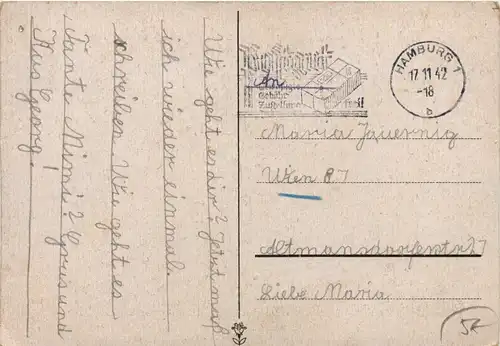 HAMBURG 1
17.11.42
-18
b
An
Gebühr
Maria Jauernig
Wien 87
Altmansdorferstr 27
Liebe Maria
Wie geht es dir? Jetzt muß
ich wieder einmal
schreiben Wie geht es
Tante Mimi? Gruss und
Kuss Georg!
52